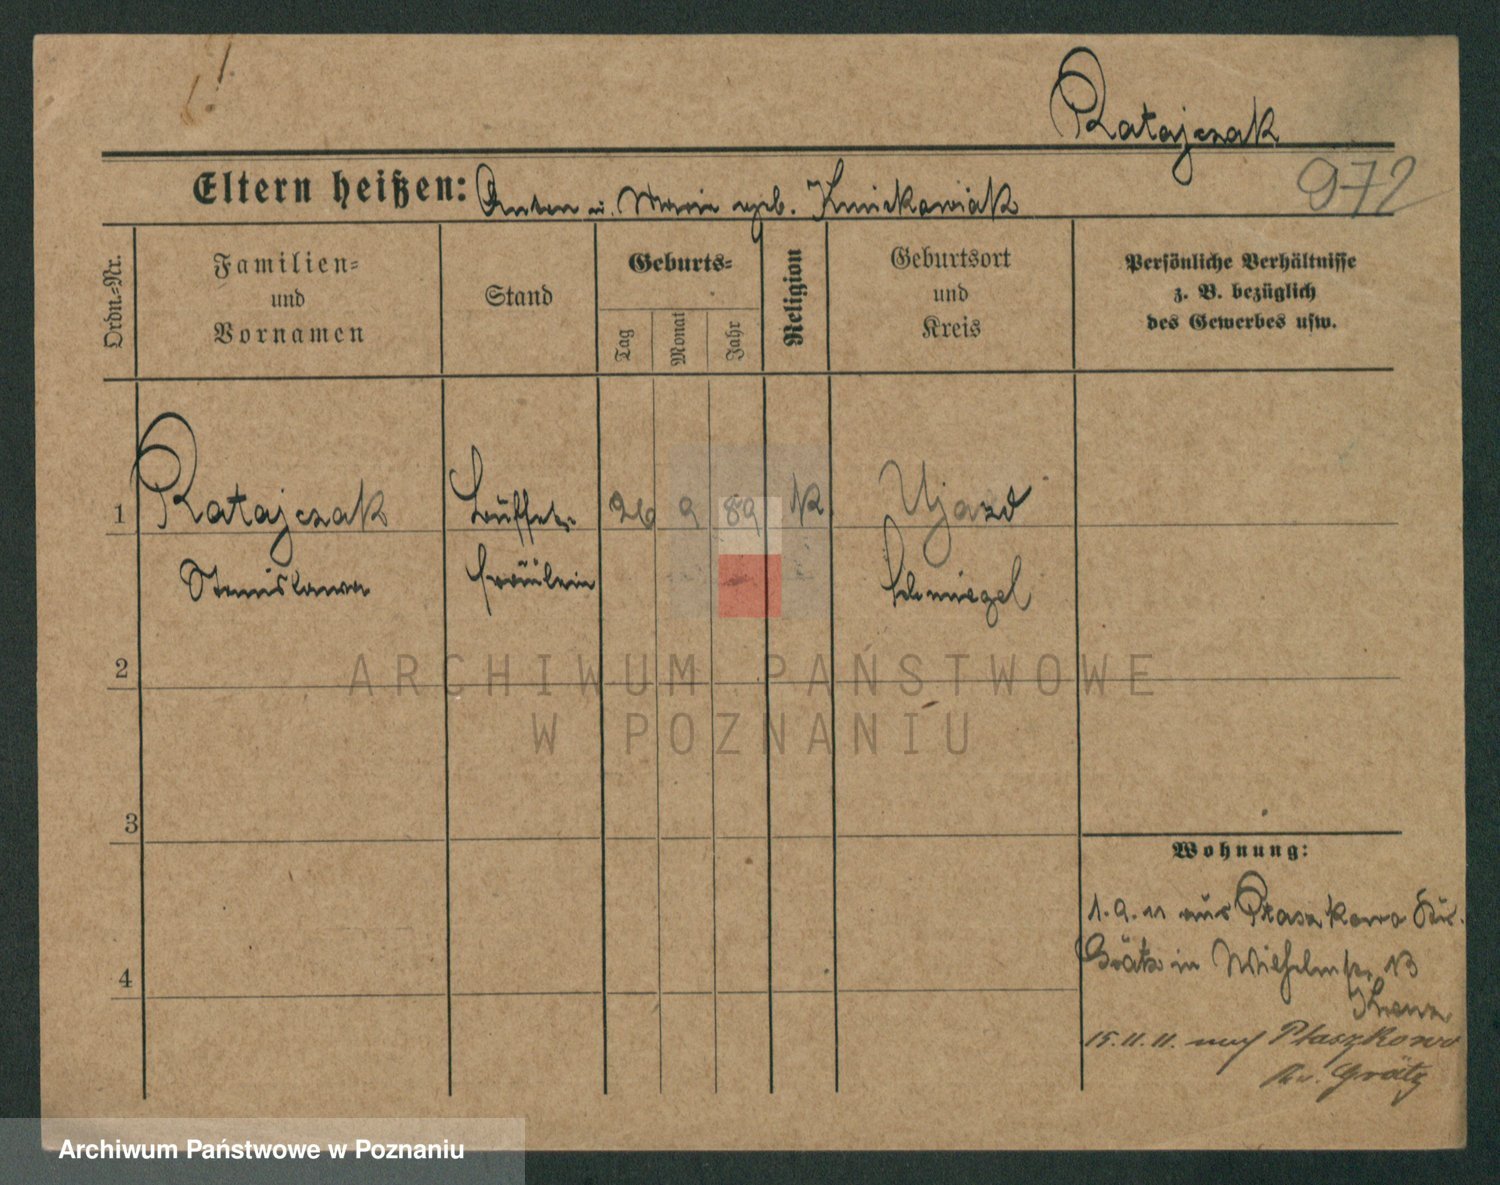 Ratajczak
972
Eltern heißen: Anton u. Marie geb. Kmiekowiak
Ordn.-Nr.
Familien-
und
Vornamen
Stand
Geburts-
Tag
Monat
Jahr
Religion
Geburtsort
und
Kreis
Persönliche Verhältnisse
z. B. bezüglich
des Gewerbes usw.
1
Ratajczak
Büffet-
26
9
89
K
Ujazd
Stanislawa
fräulein
Schmiegel
2
ARCHIWUM PAŃSTWOWE
W POZNANIU
3
Wohnung:
1.9.11 aus Ptaszkowo Kr.
Grätz in Wilhelmstr. 13
4
15.11.11. nach Ptaszkowo
Kr. Grätz
Archiwum Państwowe w Poznaniu